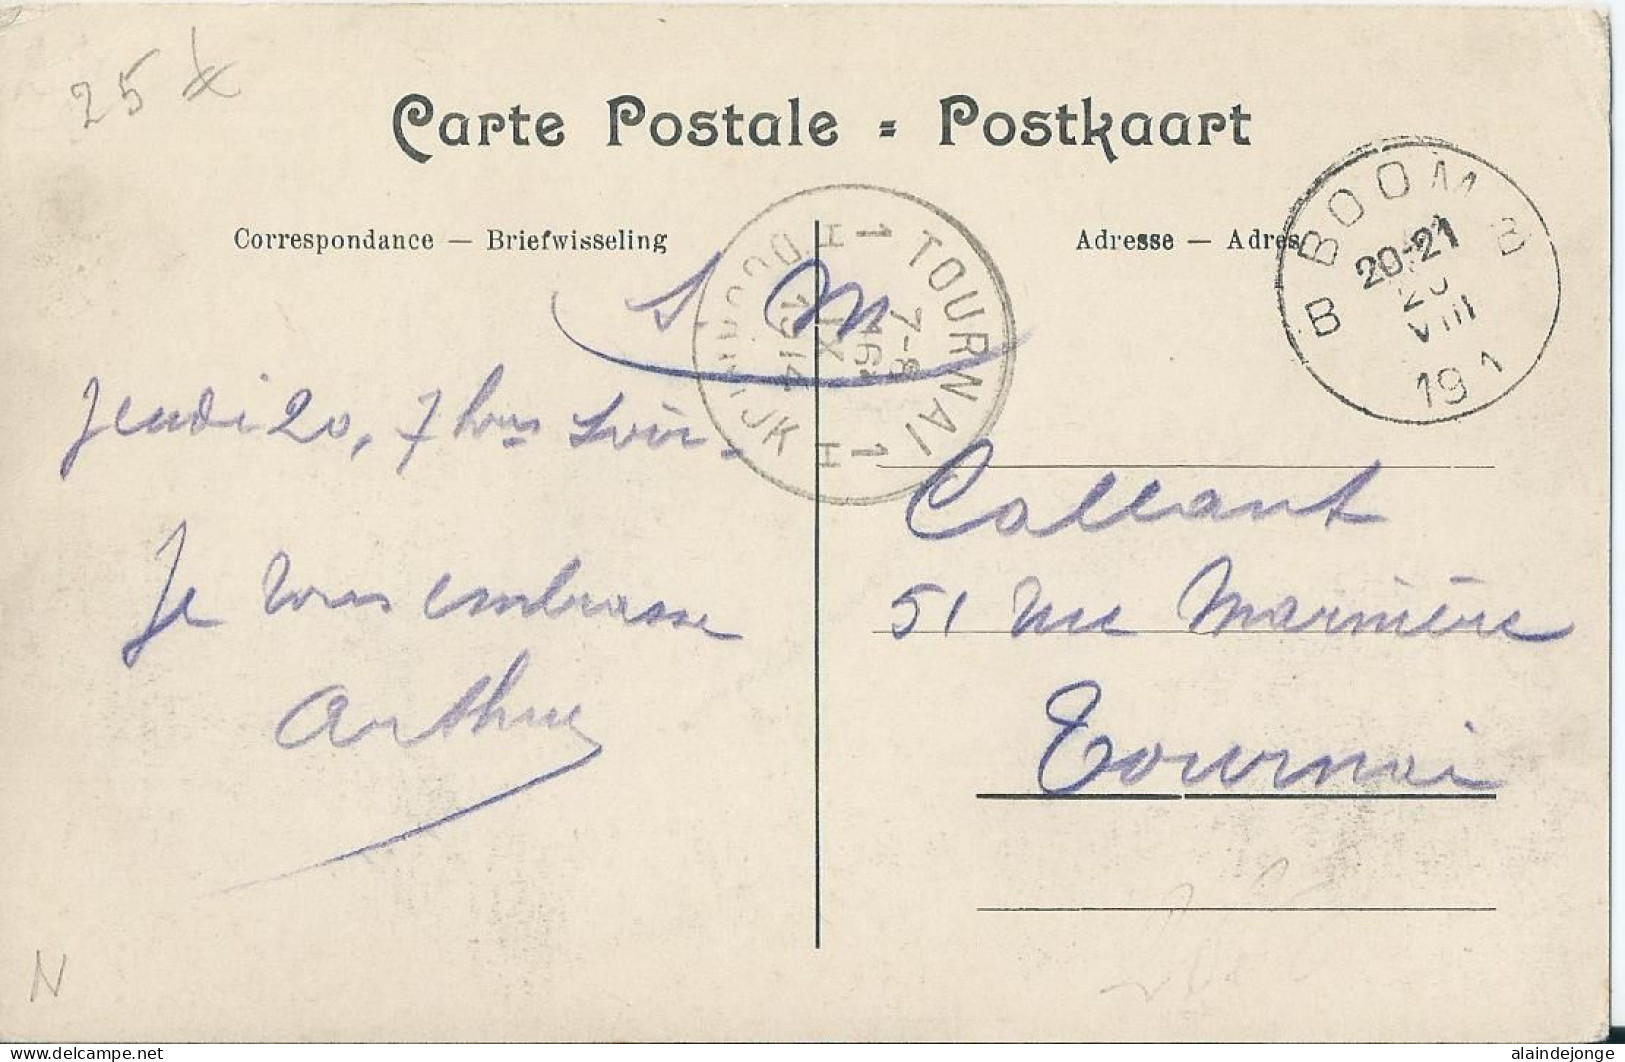 25
Carte Postale = Postkaart
Correspondance — Briefwisseling
Adresse — Adres
B BOOM B
20-21
20
VIII
191
H 1 TOURNAI 1 H DOORNIJK
7-8
16
IX
1914
S M
Jeudi 20, 7 hres soir.
Je vous embrasse
Arthur
Callant
51 rue Marinière
Tournai
N
delcampe.net
alaindejonge